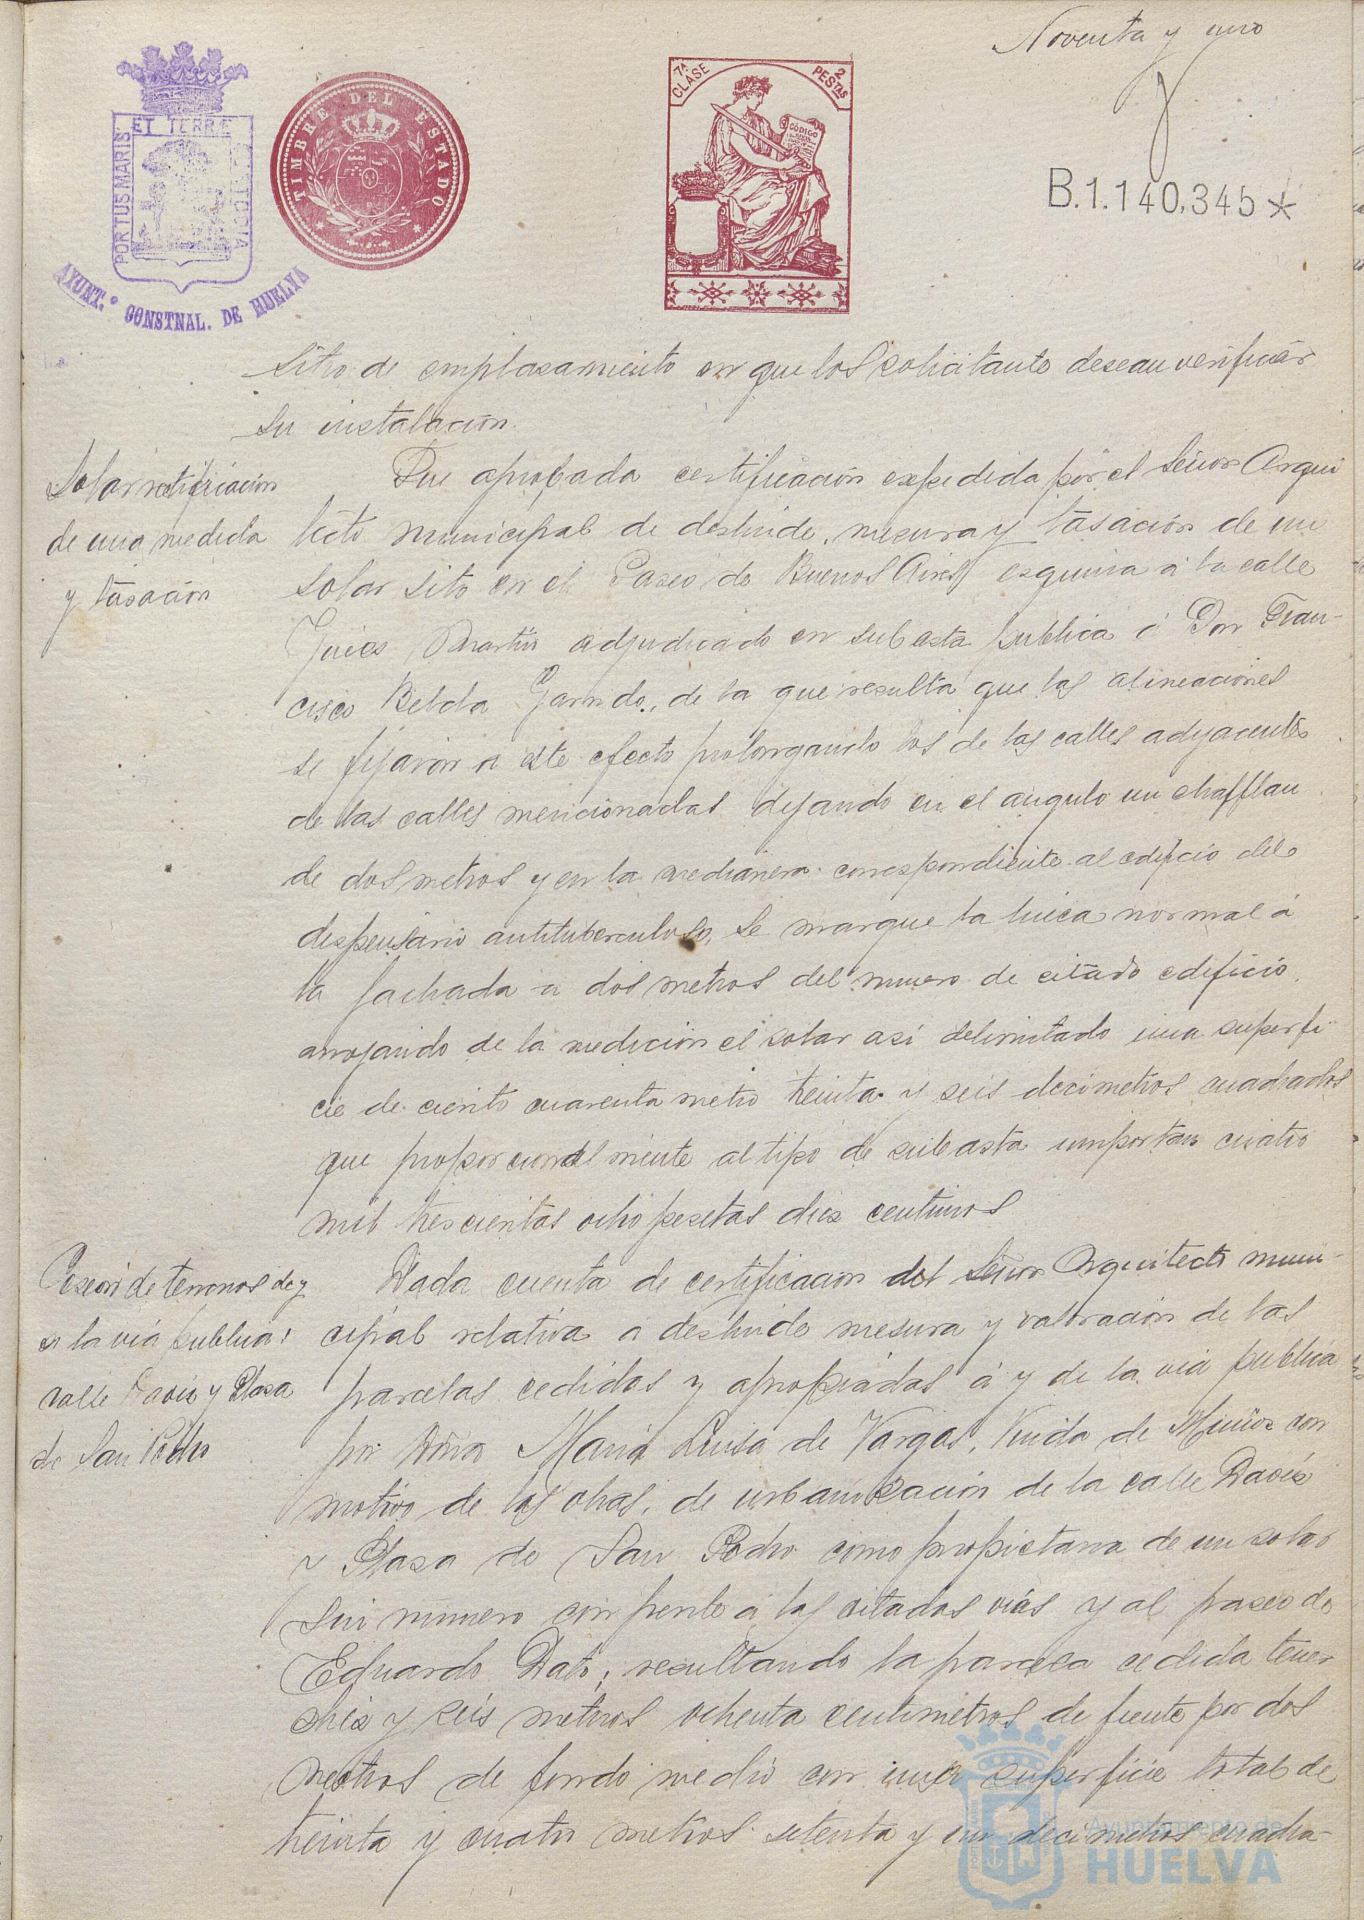 Noventa y uno
PORTUS MARIS ET TERRE CUSTODIA
AYUNT.º CONSTNAL. DE HUELVA
TIMBRE DEL ESTADO
7ª CLASE
2 PESTAS
CÓDIGO
B.1.140,345*
sitio de emplazamiento en que los solicitante desean verificar
su instalación.
Solar rectificación
de una medida
y tasación
Fue aprobada certificación expedida por el Señor Arqui
tecto municipal de deslinde, mesura y tasación de un
solar sito en el Paseo de Buenos Aires esquina á la calle
Martín adjudicado en subasta publica á Don Fran-
cisco Belda Garrido, de la que resulta que las alineaciones
se fijaron a este efecto prolongando las de las calles adyacentes
de las calles mencionadas dejando en el angulo un chafflan
de dos metros y en la medianera correspondiente al edificio del
dispensario antituberculoso, se marque la linea normal á
la fachada a dos metros del muro de citado edificio,
arrojando de la medición el solar así delimitado una superfi-
cie de ciento cuarenta metro treinta y seis decimetros cuadrados
que proporcionalmente al tipo de subasta importan cuatro
mil trescientas ocho pesetas diez centimos
Cesión de terrenos de y
a la via publica:
calle Ravis y Plaza
de San Pedro
Dada cuenta de certificación del Señor Arquitecto muni-
cipal relativa a deslinde mesura y valoración de las
parcelas cedidas y apropiadas á y de la via publica
por Doña Maria Luisa de Vargas, Viuda de Muñoz con
motivo de las obras, de urbanización de la calle Ravis
y Plaza de San Pedro como propietaria de un solar
sin número con frente á las citadas vias y al paseo de
Eduardo Dato, resultando la parcela cedida tener
diez y seis metros ochenta centimetros de frente por dos
metros de fondo medio con una superficie total de
treinta y cuatro metros setenta y un decimetros cuadra-
Ayuntamiento de
HUELVA